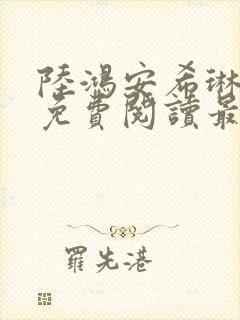 陸鴻安希琳
免費閱讀最
羅先港